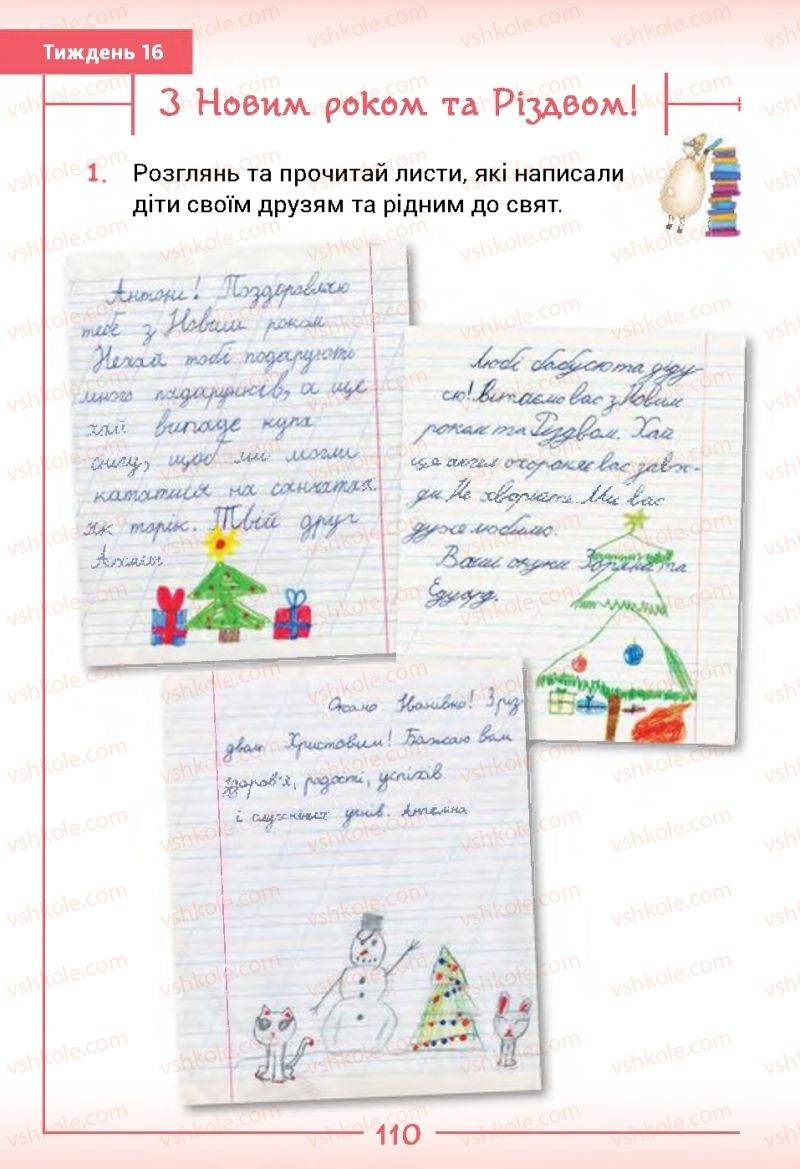 Тиждень 16
З Новим роком та Різдвом!
1. Розглянь та прочитай листи, які написали
діти своїм друзям та рідним до свят.
Антоне! Поздоровляю
тебе з Новим роком
Нехай тобі подарують
много падарунків, а ще
хай випаде купа
снігу, щоб ми могли
кататися на санчатах
як торік. Твій друг
Любі бабусю та діду-
сю! Вітаємо вас з Новим
роком та Різдвом. Хай
цей ангел охороняє вас завж-
ди. Не хворійте. Ми вас
дуже любимо.
Ваші онуки Зоряна та
Едуард.
Оксано Іванівно! З різ
двом Христовим! Бажаю вам
здоров'я, радості, успіхів
і слухняних учнів. Ангеліна
110
vshkole.com